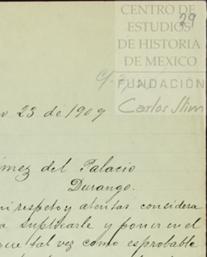 CENTRO DE
ESTUDIOS
DE HISTORIA
DE MEXICO
FUNDACIÓN
Carlos Slim
29
23 de 1909
ómez del Palacio
Durango.
respeto y atentas considera
suplicarle y poner en el
que tal vez como es probable